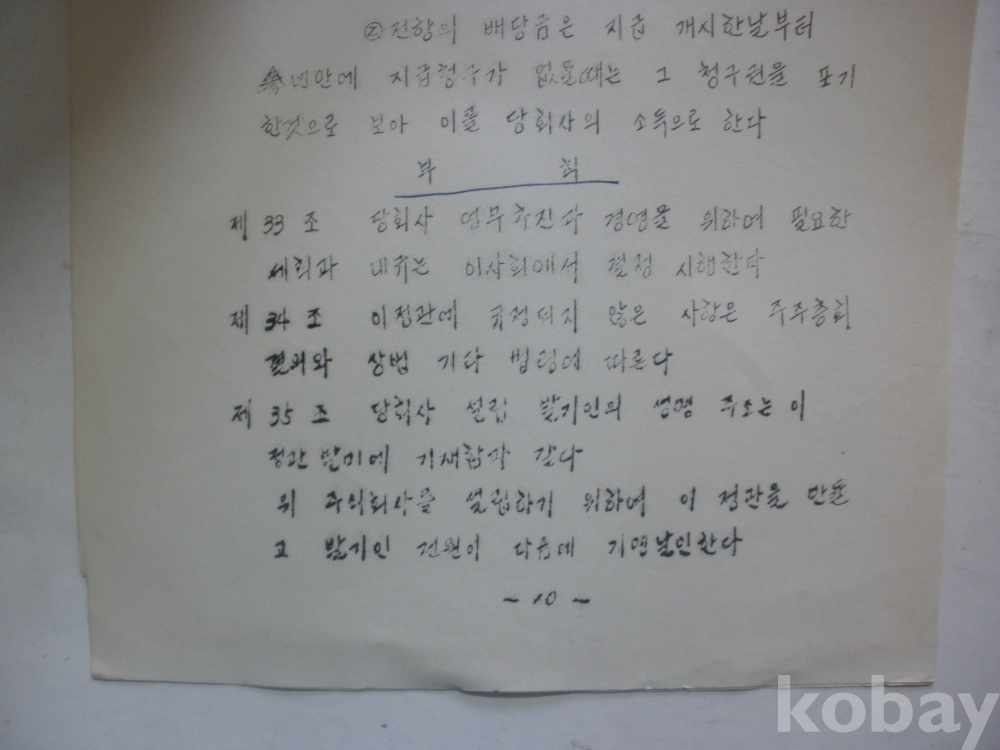 ②전항의 배당금은 지급 개시한날부터
년안에 지급청구가 없을때는 그 청구권을 포기
한것으로 보아 이를 당회사의 소득으로 한다
부 칙
제 33 조 당회사 업무추진과 경영을 위하여 필요한
세칙과 내규는 이사회에서 결정 시행한다
제 34 조 이정관에 규정되지 않은 사항은 주주총회
결의와 상법 기타 법령에 따른다
제 35 조 당회사 설립 발기인의 성명 주소는 이
정관 말미에 기재함과 같다
위 주식회사를 설립하기 위하여 이 정관을 만들
고 발기인 전원이 다음에 기명날인한다
~ 10 ~
kobay